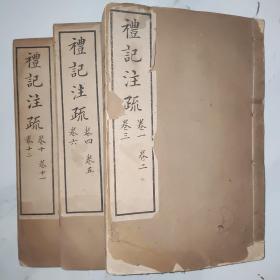 禮記注疏
卷一 卷二
卷三
禮記注疏
卷四 卷五
卷六
禮記注疏
卷十 卷十一
卷十二